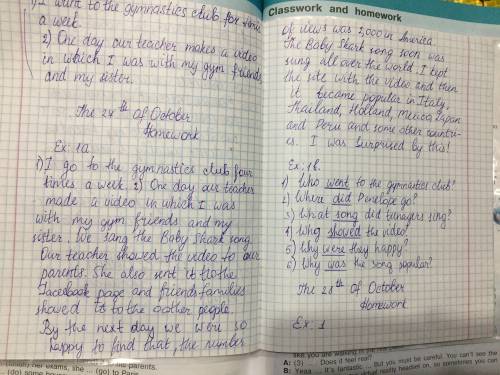 1) I want to the gymnastics club for
a week.
2) One day our teacher makes a video
in which I was with my gym friends
and my sister.
The 24th of October
Homework
Ex: 1a
1) I go to the gymnastics club four
times a week. 2) One day our teacher
made a video in which I was
with my gym friends and my
sister. We sang the Baby Shark song.
Our teacher showed the video to our
parents. She also sent it to the
Facebook page and friends families
showed is to the oother people.
By the next day we were so
happy to find that, the number
Classwork and homework
of views was 5,000 in America.
The Baby Shark song soon was
sung all over the world. I kept
the site with the video and then
it became popular in Italy,
Thailand, Holland, Mexico, Japan
and Peru and some other countri-
es. I was surprised by this!
Ex: 1b.
1) Who went to the gymnastics club?
2) Where did Penelope go?
3) What song did teenagers sing?
4) Who showed the video?
5) Why were they happy?
6) Why was the song popular?
The 28th of October
Homework
Ex: 1
her exams, she ... (go) to Paris
(do) some
the parents.
like you are walking in the
A: (3) ... Does it feel real?
B: Yeaa ... It's fantastic ... But you must be careful. You can't see the
virtual reality headset on, so sometimes you can